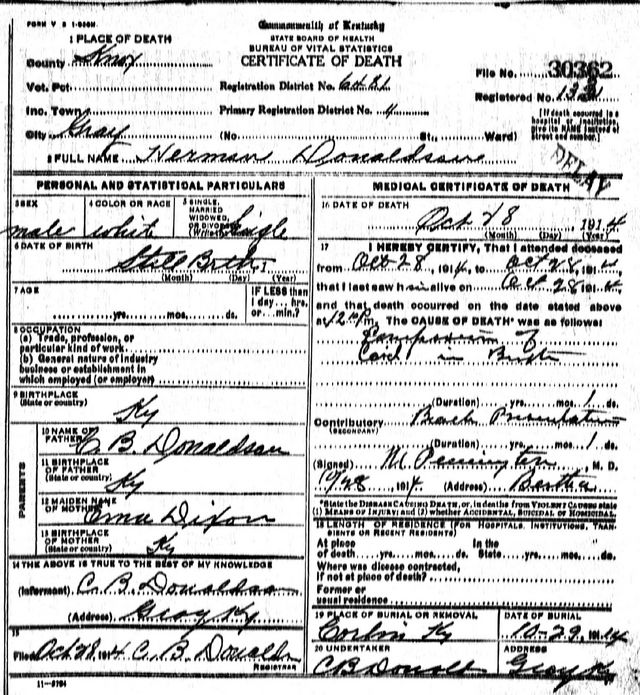 FORM V S 1-250M.
Commonwealth of Kentucky
STATE BOARD OF HEALTH
BUREAU OF VITAL STATISTICS
CERTIFICATE OF DEATH
1 PLACE OF DEATH
County Knox
Vot. Pct
Inc. Town
City Gray
Registration District No. 6481
Primary Registration District No.
(No St., Ward)
File No. 30362
Registered No.
[If death occurred in a
hospital or institution,
give its NAME instead of
street and number.]
2 FULL NAME Herman Donaldson
DELAY
PERSONAL AND STATISTICAL PARTICULARS
3 SEX
male
4 COLOR OR RACE
whit
5 SINGLE,
MARRIED
WIDOWED,
OR DIVORCED
(Write the word)
Single
6 DATE OF BIRTH
Still Birth 1
(Month) (Day) (Year)
7 AGE
yrs. mos. ds.
IF LESS than
1 day... hrs.
or ... min.?
8 OCCUPATION
(a) Trade, profession, or
particular kind of work
(b) General nature of industry
business or establishment in
which employed (or employer)
9 BIRTHPLACE
(State or country)
Ky
PARENTS
10 NAME OF
FATHER
C B Donaldson
11 BIRTHPLACE
OF FATHER
(State or country)
Ky
12 MAIDEN NAME
OF MOTHER
Ema Dixon
13 BIRTHPLACE
OF MOTHER
(State or country)
Ky
14 THE ABOVE IS TRUE TO THE BEST OF MY KNOWLEDGE
(Informant) C. B. Donaldson
(Address) Gray Ky
15
Filed Oct 28 1914 C. B. Donaldson
REGISTRAR
11-5794
MEDICAL CERTIFICATE OF DEATH
16 DATE OF DEATH
Oct 28, 1914
(Month) (Day) (Year)
17 I HEREBY CERTIFY, That I attended deceased
from Oct 28, 1914, to Oct 28, 1914,
that I last saw him alive on Oct 28 1914,
and that death occurred on the date stated above
at 12 P m. The CAUSE OF DEATH* was as follows:
of
Cord in Birth
(Duration) yrs. mos. 1 ds.
Contributory
(SECONDARY)
(Duration) yrs. mos. 1 ds.
(Signed) M Pennington, M. D.
10/28 1914. (Address) Bertha
*State the DISEASE CAUSING DEATH, or, in deaths from VIOLENT CAUSES state
(1) MEANS OF INJURY; and (2) whether ACCIDENTAL, SUICIDAL or HOMICIDAL.
18 LENGTH OF RESIDENCE (FOR HOSPITALS, INSTITUTIONS, TRANSIENTS OR RECENT RESIDENTS)
At place In the
of death yrs. mos. ds. State yrs. mos. ds.
Where was disease contracted,
if not at place of death?
Former or
usual residence
19 PLACE OF BURIAL OR REMOVAL
Corbin Ky
DATE OF BURIAL
10-29 1914
20 UNDERTAKER
C B Donald
ADDRESS
Gray Ky